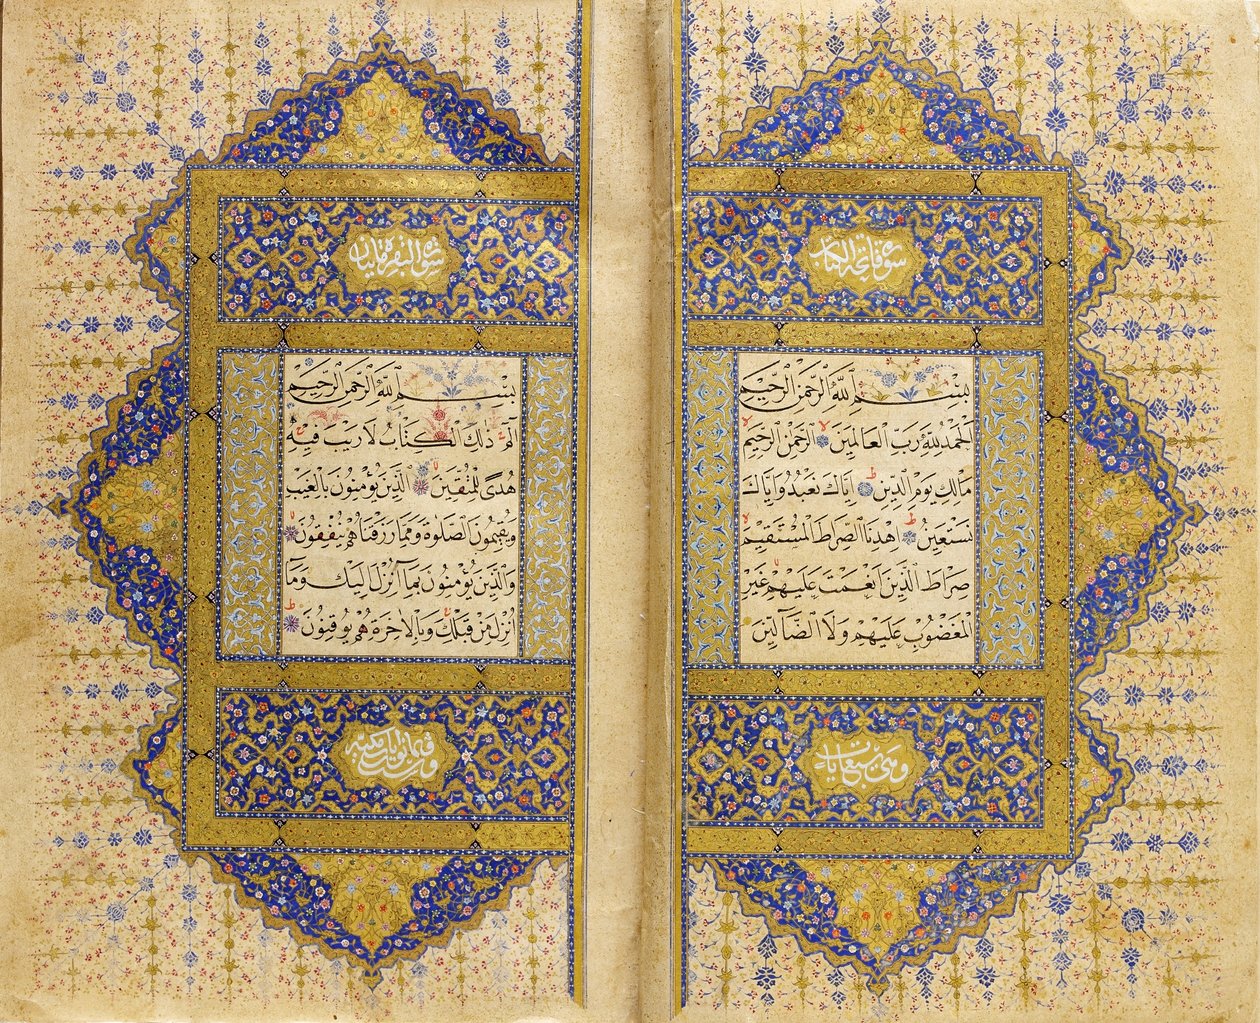 سورة فاتحة الكتاب
بِسْمِ اللهِ الرَّحْمٰنِ الرَّحِيمِ
اَلْحَمْدُ لِلّٰهِ رَبِّ الْعَالَمِينَ الرَّحْمٰنِ الرَّحِيمِ
مَالِكِ يَوْمِ الدِّينِ اِيَّاكَ نَعْبُدُ وَاِيَّاكَ
نَسْتَعِينُ اِهْدِنَا الصِّرَاطَ الْمُسْتَقِيمَ
صِرَاطَ الَّذِينَ اَنْعَمْتَ عَلَيْهِمْ غَيْرِ
الْمَغْضُوبِ عَلَيْهِمْ وَلَا الضَّآلِّينَ
وهي سبع ايات
سورة البقرة مايتان
بِسْمِ اللهِ الرَّحْمٰنِ الرَّحِيمِ
الٓمٓ ذٰلِكَ الْكِتَابُ لَا رَيْبَ فِيهِ
هُدًى لِلْمُتَّقِينَ الَّذِينَ يُؤْمِنُونَ بِالْغَيْبِ
وَيُقِيمُونَ الصَّلٰوةَ وَمِمَّا رَزَقْنَاهُمْ يُنْفِقُونَ
وَالَّذِينَ يُؤْمِنُونَ بِمَآ اُنْزِلَ اِلَيْكَ وَمَآ
اُنْزِلَ مِنْ قَبْلِكَ وَبِالْاٰخِرَةِ هُمْ يُوقِنُونَ